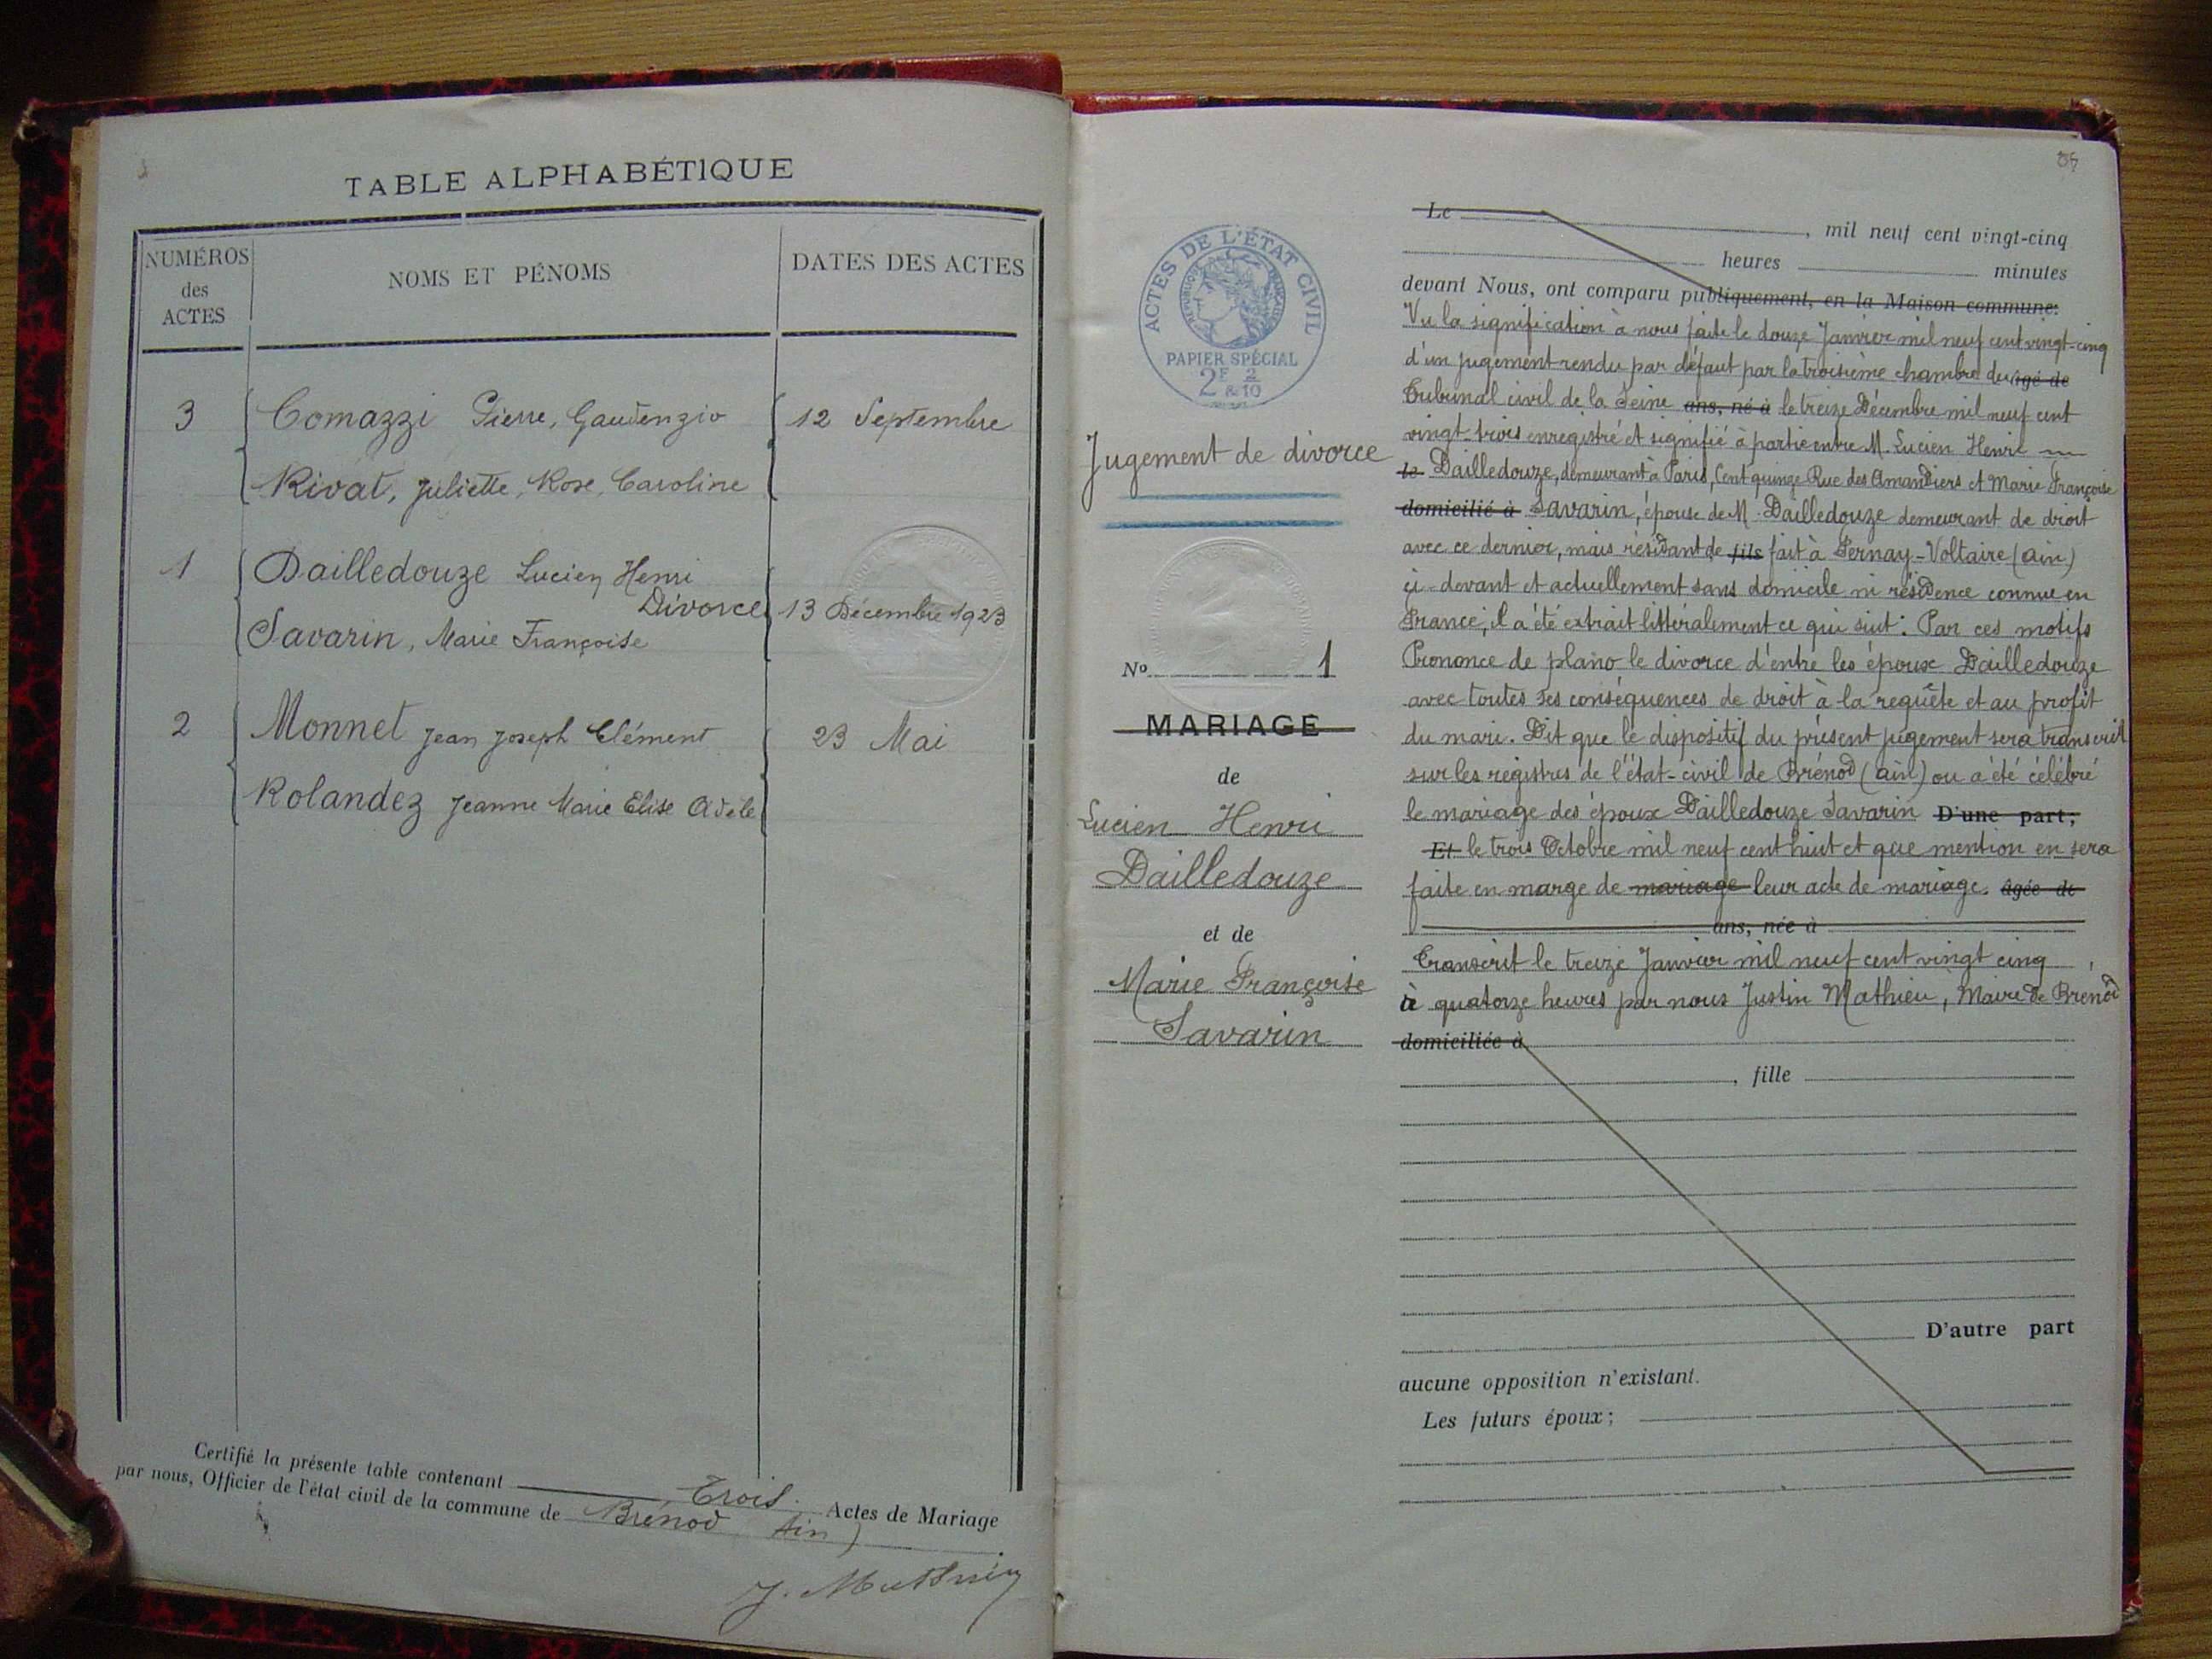 TABLE ALPHABÉTIQUE
NUMÉROS
des
ACTES
NOMS ET PÉNOMS
DATES DES ACTES
3
Comazzi Pierre, Gaudenzio
12 Septembre
Rivat, Juliette, Rose, Caroline
1
Dailledouze Lucien Henri
Divorce
13 Décembre 1923
Savarin, Marie Françoise
2
Monnet Jean Joseph Clément
23 Mai
Rolandez Jeanne Marie Elise Adèle
Certifié la présente table contenant Trois Actes de Mariage
par nous, Officier de l'état civil de la commune de Brénod Ain)
J. Mathieu
ACTES DE L'ÉTAT CIVIL
RÉPUBLIQUE FRANÇAISE
PAPIER SPÉCIAL
2F & 2/10
Jugement de divorce
No 1
MARIAGE
de
Lucien Henri
Dailledouze
et de
Marie Françoise
Savarin
Le , mil neuf cent vingt-cinq
heures minutes
devant Nous, ont comparu publiquement, en la Maison commune:
Vu la signification à nous faite le douze Janvier mil neuf cent vingt-cinq
d'un jugement rendu par défaut par la troisième chambre du âgé de
Tribunal civil de la Seine ans, né à le treize Décembre mil neuf cent
vingt-trois enregistré et signifié à partie entre M. Lucien Henri
le Dailledouze, demeurant à Paris, Cent quinze Rue des Amandiers et Marie Françoise
domicilié à Savarin, épouse de M. Dailledouze demeurant de droit
avec ce dernier, mais résidant de fils fait à Fernay-Voltaire (ain)
ci-devant et actuellement sans domicile ni résidence connue en
France, il a été extrait littéralement ce qui suit: Par ces motifs
Prononce de plano le divorce d'entre les époux Dailledouze
avec toutes ses conséquences de droit à la requête et au profit
du mari. Dit que le dispositif du présent jugement sera transcrit
sur les registres de l'état-civil de Brénod (ain) ou a été célébré
le mariage des époux Dailledouze Savarin D'une part;
Et le trois Octobre mil neuf cent huit et que mention en sera
faite en marge de mariage leur acte de mariage. âgée de
ans, née à
Transcrit le treize Janvier mil neuf cent vingt cinq
à quatorze heures par nous Justin Mathieu, Maire de Brénod
domiciliée à
, fille
D'autre part
aucune opposition n'existant.
Les futurs époux;